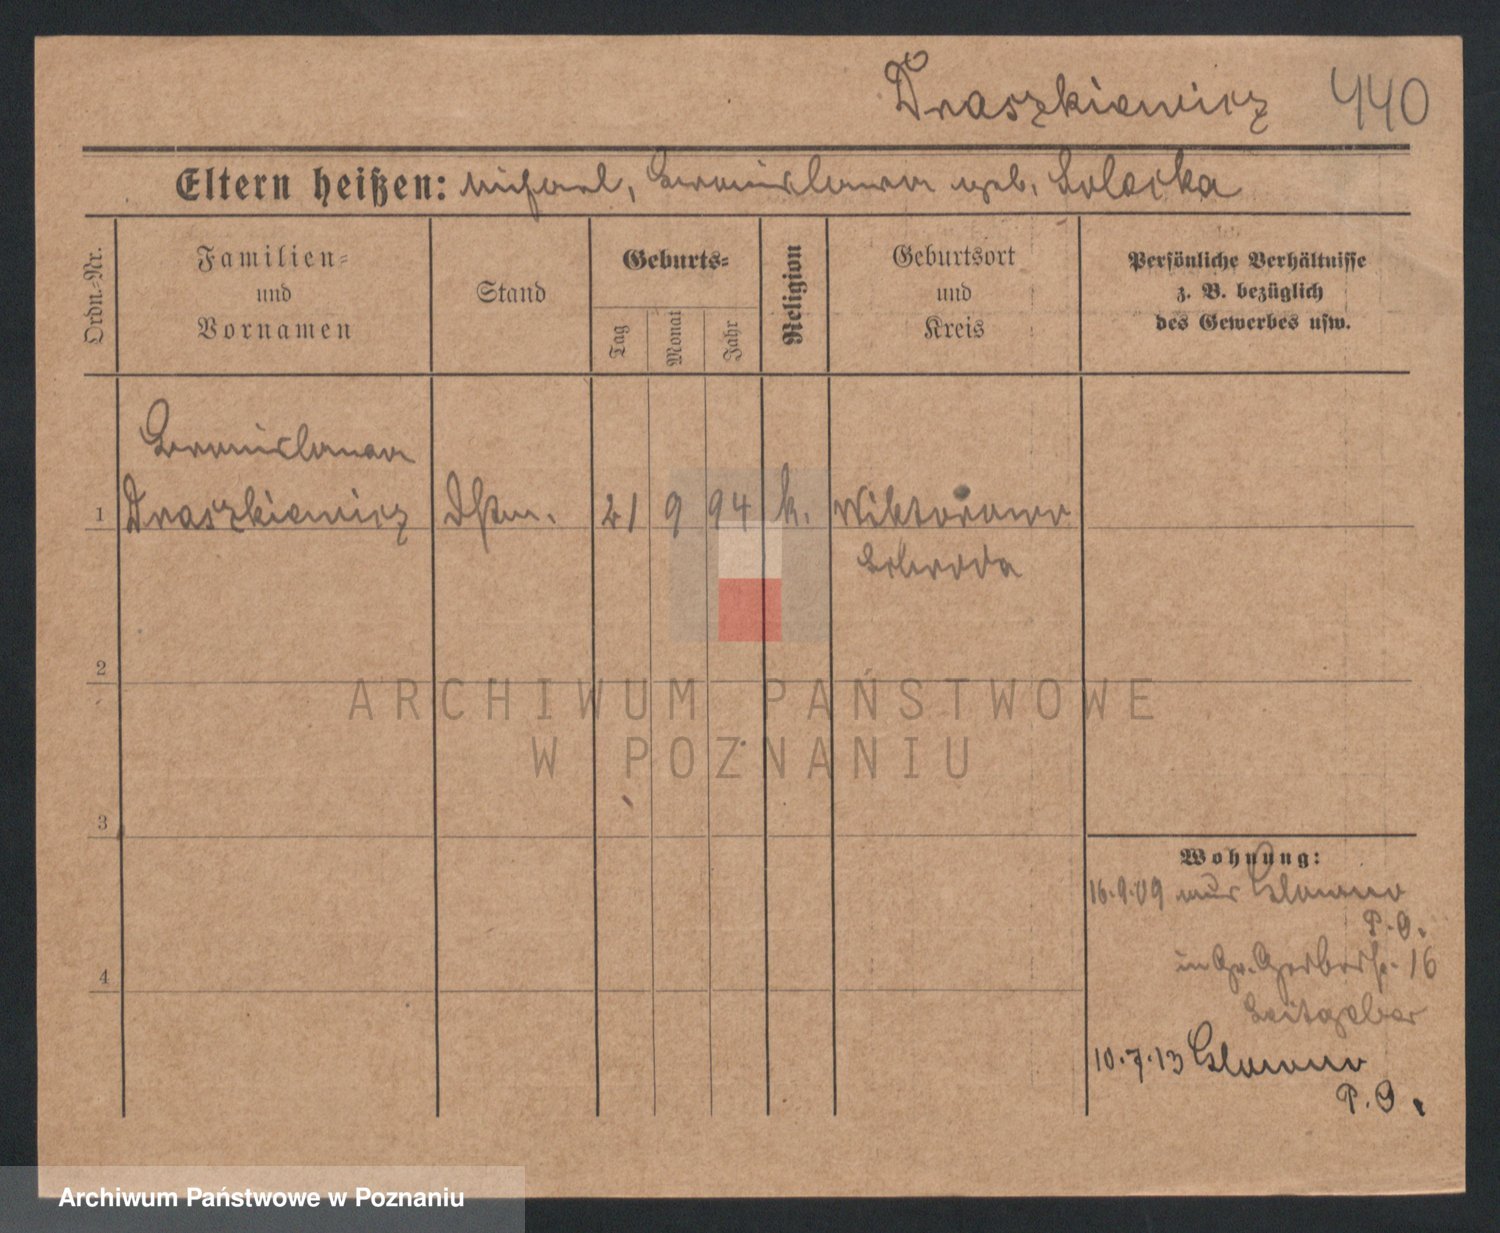 Draszkiewicz 440
Eltern heißen: Michael, Bronislawa geb. Solecka
Ordn.-Nr.
Familien-
und
Vornamen
Stand
Geburts-
Tag
Monat
Jahr
Religion
Geburtsort
und
Kreis
Persönliche Verhältnisse
z. B. bezüglich
des Gewerbes usw.
Bronislawa
1 Draszkiewicz 21 9 94 k. Wiktorowo
Schroda
2
ARCHIWUM PAŃSTWOWE
W POZNANIU
3
Wohnung:
16.9.09 aus Glowno
P.O.
in Gr. Gerberstr. 16
Leitgeber
4
10.7.13 Glowno
P.O.
Archiwum Państwowe w Poznaniu